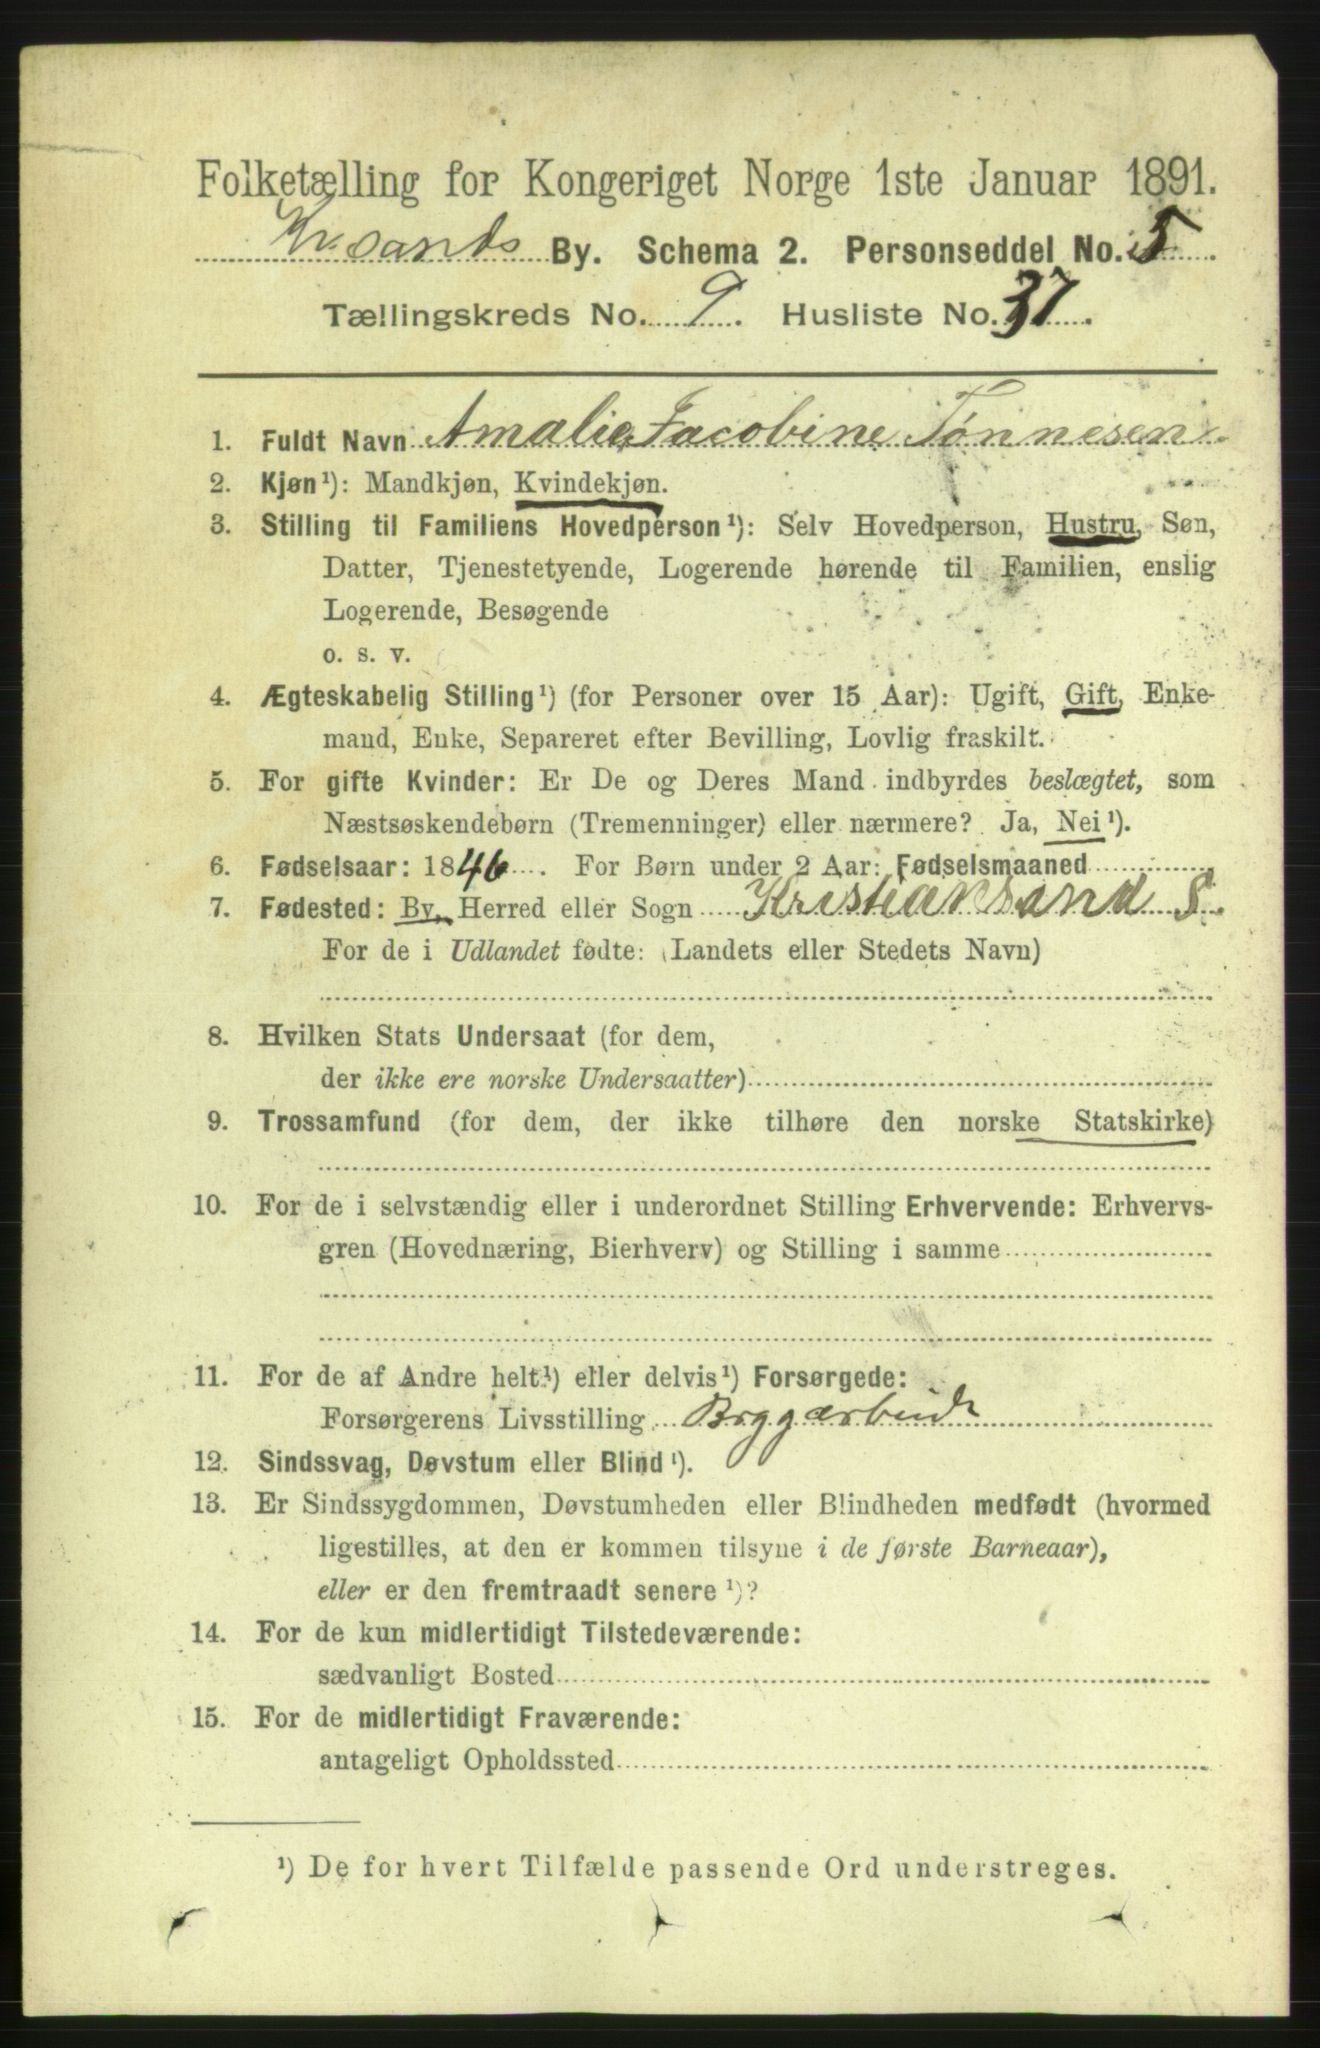 Folketælling for Kongeriget Norge 1ste Januar 1891.
Kr.sands By. Schema 2. Personseddel No. 5
Tællingskreds No. 9. Husliste No. 37.
1. Fuldt Navn Amalie Jacobine Tønnesen
2. Kjøn¹): Mandkjøn, Kvindekjøn.
3. Stilling til Familiens Hovedperson¹): Selv Hovedperson, Hustru, Søn,
Datter, Tjenestetyende, Logerende hørende til Familien, enslig
Logerende, Besøgende
o. s. v.
4. Ægteskabelig Stilling¹) (for Personer over 15 Aar): Ugift, Gift, Enke-
mand, Enke, Separeret efter Bevilling, Lovlig fraskilt.
5. For gifte Kvinder: Er De og Deres Mand indbyrdes beslægtet, som
Næstsøskendebørn (Tremenninger) eller nærmere? Ja, Nei¹).
6. Fødselsaar: 1846. For Børn under 2 Aar: Fødselsmaaned
7. Fødested: By, Herred eller Sogn Kristiansand S.
For de i Udlandet fødte: (Landets eller Stedets Navn)
8. Hvilken Stats Undersaat (for dem,
der ikke ere norske Undersaatter)
9. Trossamfund (for dem, der ikke tilhøre den norske Statskirke)
10. For de i selvstændig eller i underordnet Stilling Erhvervende: Erhvervs-
gren (Hovednæring, Bierhverv) og Stilling i samme
11. For de af Andre helt¹) eller delvis¹) Forsørgede:
Forsørgerens Livsstilling
12. Sindssvag, Døvstum eller Blind¹).
13. Er Sindssygdommen, Døvstumheden eller Blindheden medfødt (hvormed
ligestilles, at den er kommen tilsyne i de første Barneaar),
eller er den fremtraadt senere¹)?
14. For de kun midlertidigt Tilstedeværende:
sædvanligt Bosted
15. For de midlertidigt Fraværende:
antageligt Opholdssted
¹) De for hvert Tilfælde passende Ord understreges.